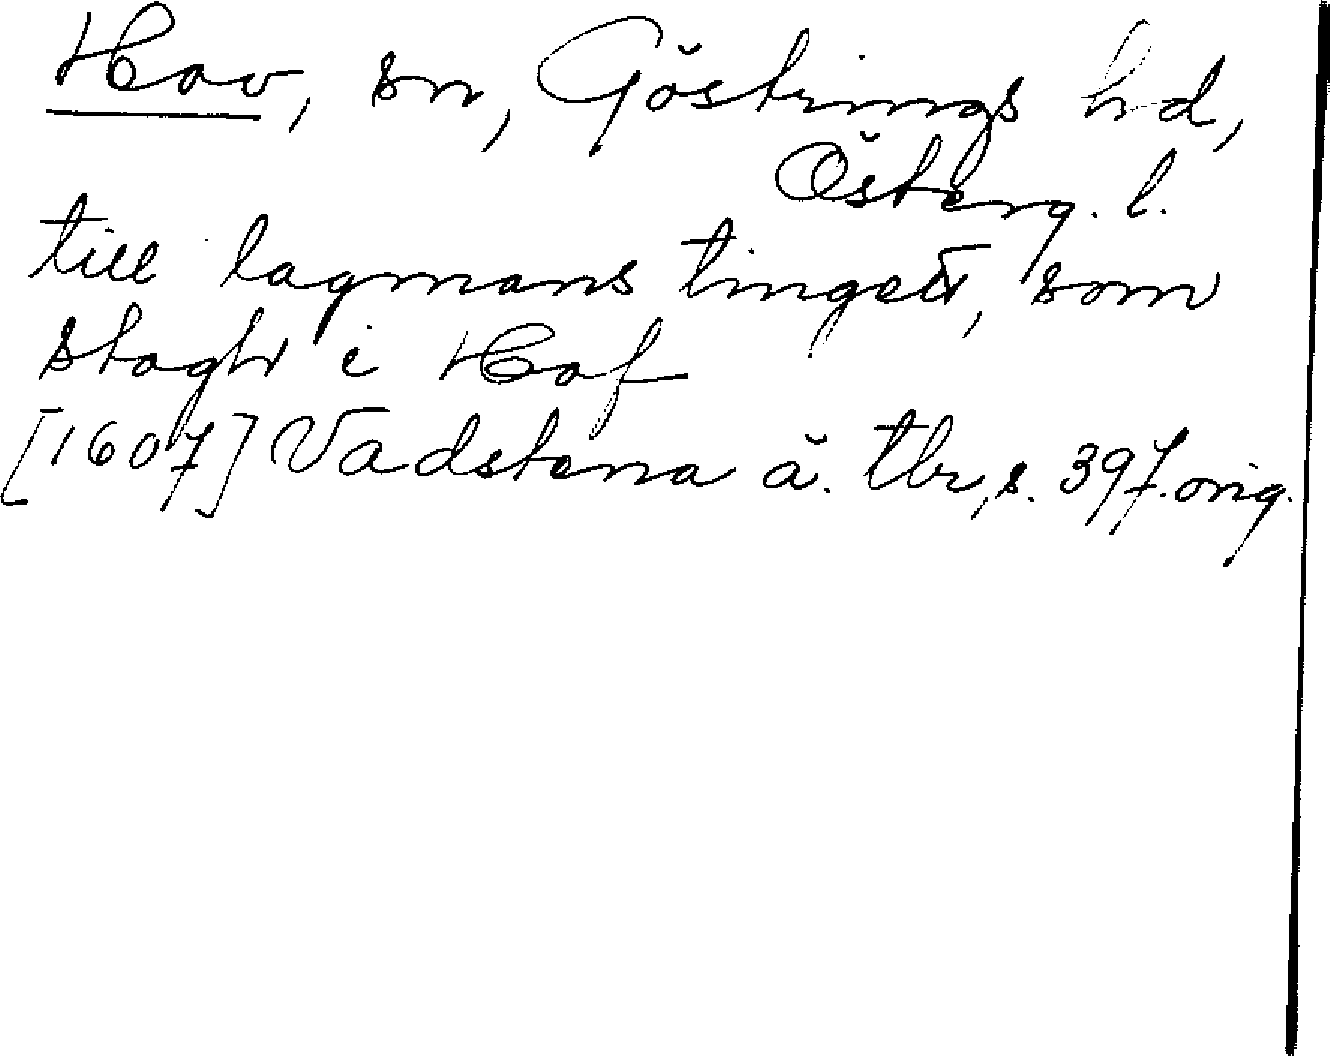 Hov, sn, Göstrings hd,
Österg. l.
till lagmans tingett, som
stogh i Hof
[1607] Vadstena ä. tbr, s. 397. orig.